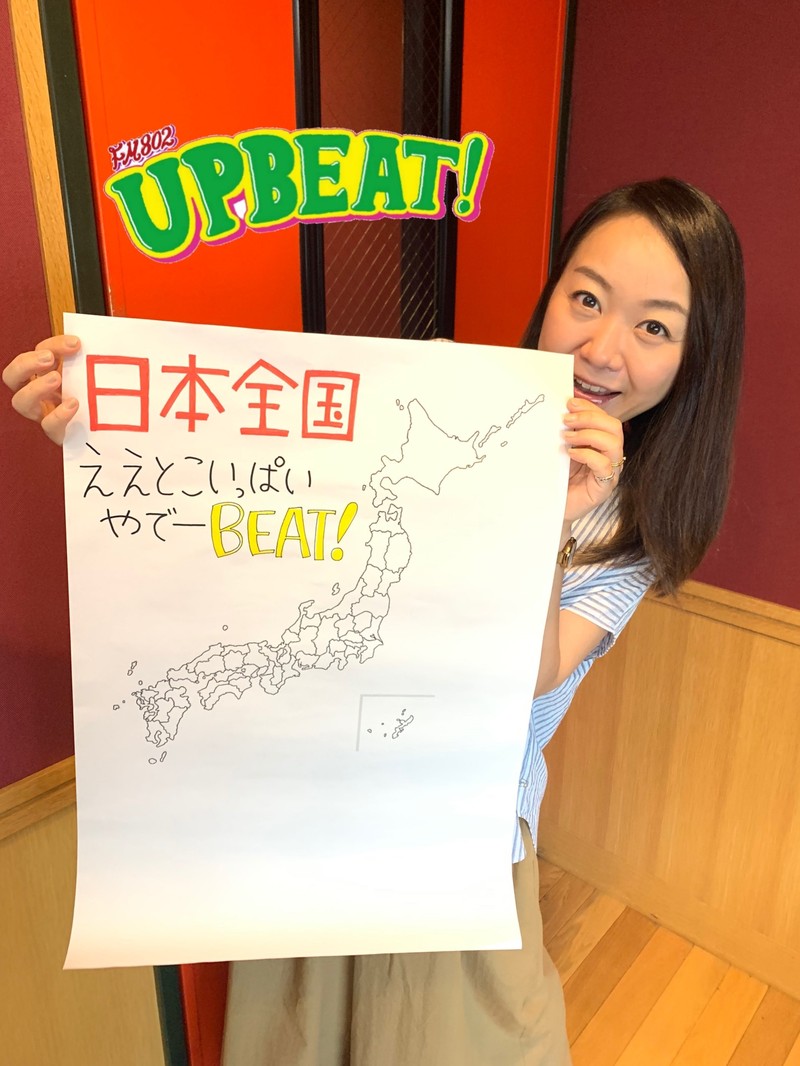 FM802
UPBEAT!
日本全国
ええとこいっぱい
やでーBEAT!